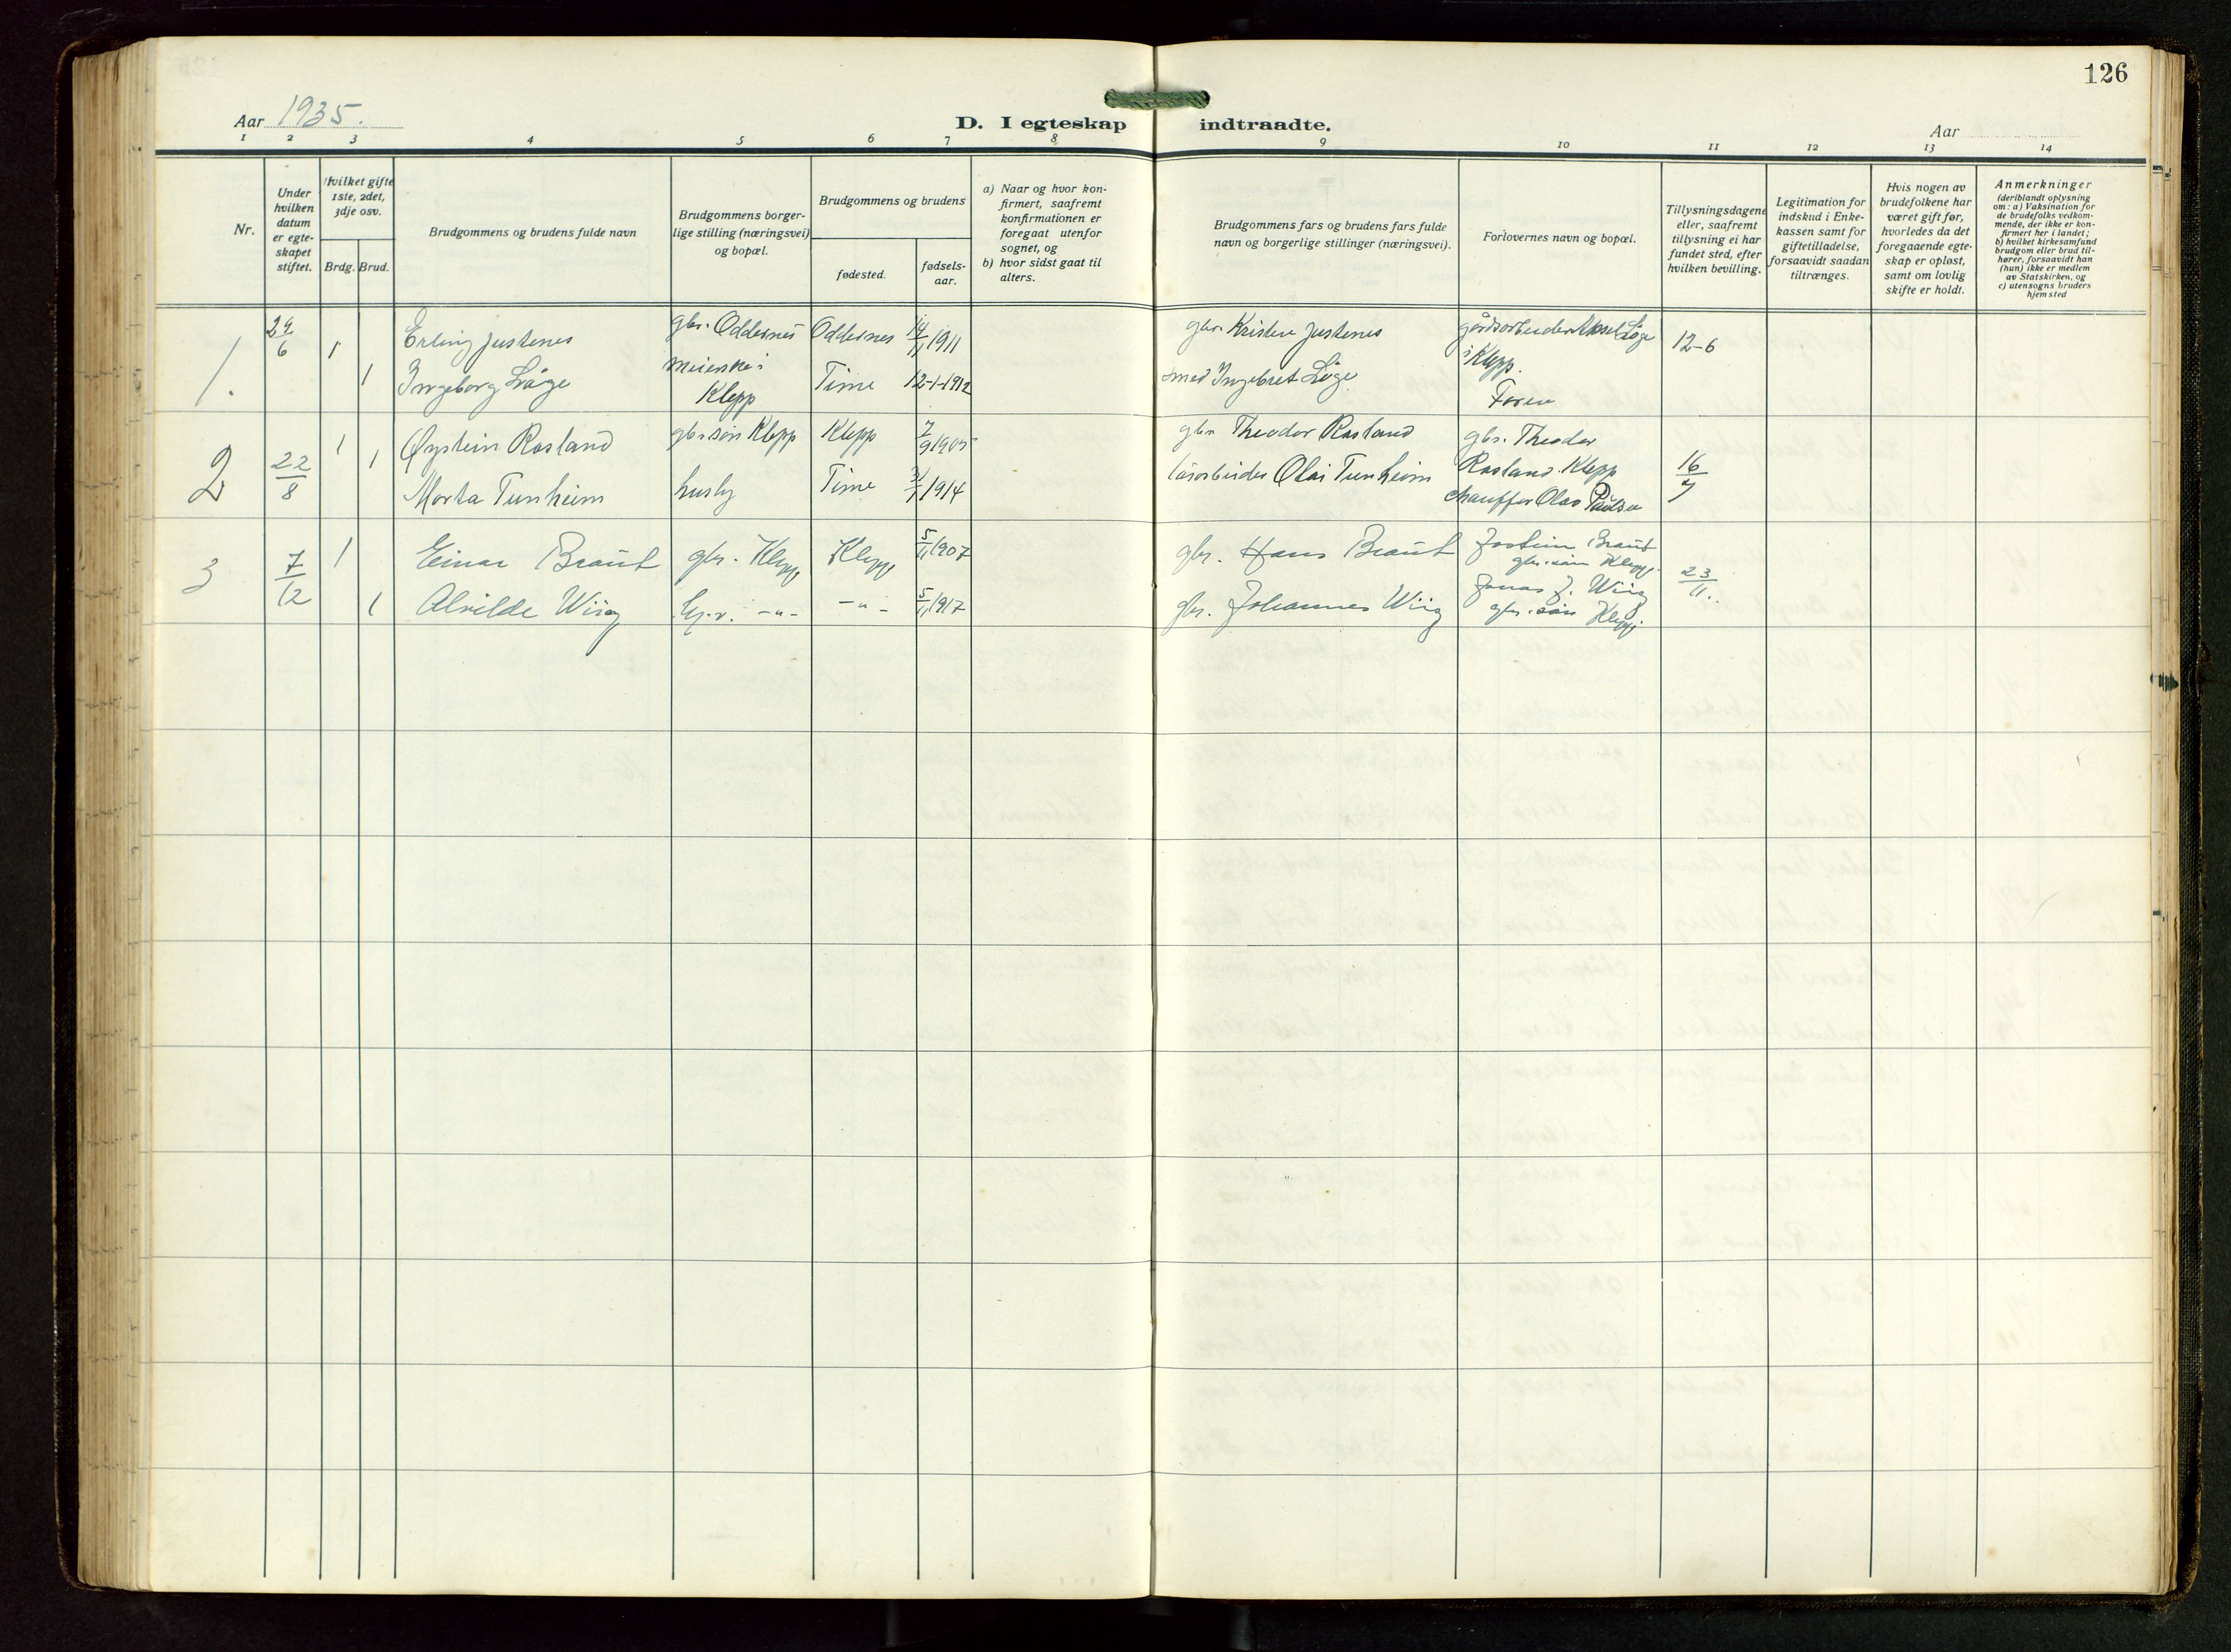 126
Aar 1935.
D. I egteskap indtraadte.
Aar
1 2 3 4 5 6 7 8 9 10 11 12 13 14
Nr.
Under hvilken datum er egte-skapet stiftet.
Hvilket gifte 1ste, 2det, 3dje osv.
Brdg. Brud.
Brudgommens og brudens fulde navn
Brudgommens borger-lige stilling (næringsvei) og bopæl.
Brudgommens og brudens
fødested.
fødsels-aar.
a) Naar og hvor kon-
firmert, saafremt
konfirmationen er
foregaat utenfor
sognet, og
b) hvor sidst gaat til
alters.
Brudgommens fars og brudens fars fulde
navn og borgerlige stillinger (næringsvei).
Forlovernes navn og bopæl.
Tillysningsdagene
eller, saafremt
tillysning ei har
fundet sted, efter
hvilken bevilling.
Legitimation for
indskud i Enke-
kassen samt for
giftetilladelse,
forsaavidt saadan
tiltrænges.
Hvis nogen av
brudefolkene har
været gift før,
hvorledes da det
foregaaende egte-
skap er opløst,
samt om lovlig
skifte er holdt.
Anmerkninger
(deriblandt oplysning
om: a) Vaksination for
de brudefolks vedkom-
mende, der ikke er kon-
firmert her i landet;
b) hvilket kirkesamfund
brudgom eller brud til-
hører, forsaavidt han
(hun) ikke er medlem
av Statskirken, og
c) utensogns bruders
hjemsted
1. 29/6 1 Erling Justenes gbr. Oddernes Oddernes 14/11 1911 gbr. Kristen Justenes gårdsarbeider Aksel Låge i Klepp. 12-6
1 Ingeborg Låge meierske i Klepp Time 12-1-1912 smed Ingebret Låge Faren
2 22/8 1 Øystein Rosland gbr.søn Klepp Klepp 7/9 1905 gbr Theodor Rosland gbr. Theodor Rosland Klepp 16/7
1 Marta Tunheim husby Time 31/1 1914 Olai Tunheim chauffør Olav Paulsen
3 7/12 1 Einar Braut gbr. Klepp Klepp 5/11 1907 gbr. Hans Braut Jostein Braut gbr.søn Klepp 23/11.
1 Alvilde Wiig -"- -"- 5/11 1917 gbr. Johannes Wiig Jonas J. Wiig gbr.søn Klepp.